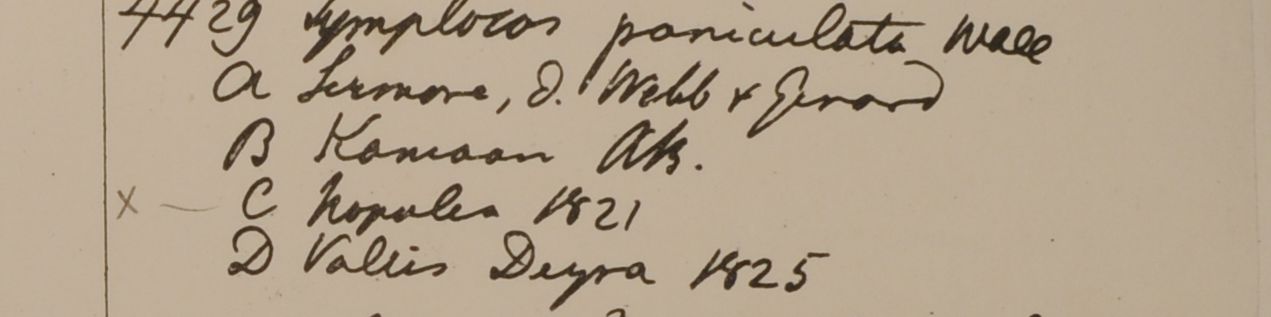 4429 Symplocos paniculata Wall
A Sirmore, D. Webb & Gerard
B Kamaon RB.
C Napalia 1821
D Vallis Deyra 1825